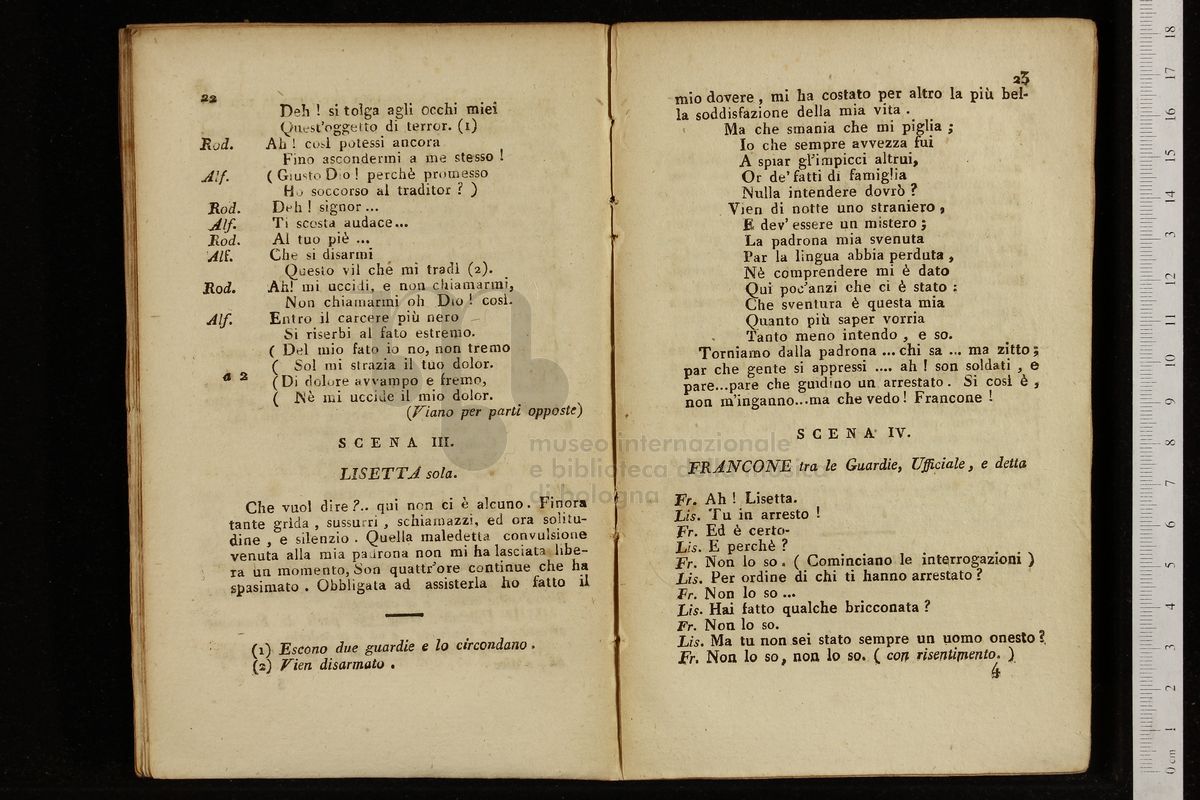 22
Deh ! si tolga agli occhi miei
Quest'oggetto di terror. (1)
Rod. Ah ! così potessi ancora
Fino ascondermi a me stesso !
Alf. ( Giusto Dio ! perchè promesso
Ho soccorso al traditor ? )
Rod. Deh ! signor ...
Alf. Ti scosta audace...
Rod. Al tuo piè ...
Alf. Che si disarmi
Questo vil che mi tradì (2).
Rod. Ah! mi uccidi, e non chiamarmi,
Non chiamarmi oh Dio ! così.
Alf. Entro il carcere più nero
Si riserbi al fato estremo.
( Del mio fato io no, non tremo
( Sol mi strazia il tuo dolor.
a 2
( Di dolore avvampo e fremo,
( Nè mi uccide il mio dolor.
(Viano per parti opposte)
SCENA III.
LISETTA sola.
Che vuol dire ?.. qui non ci è alcuno. Finora
tante grida , sussurri , schiamazzi, ed ora solitu-
dine , e silenzio . Quella maledetta convulsione
venuta alla mia padrona non mi ha lasciata libe-
ra un momento, Son quattr'ore continue che ha
spasimato . Obbligata ad assisterla ho fatto il
(1) Escono due guardie e lo circondano .
(2) Vien disarmato .
23
mio dovere , mi ha costato per altro la più bel-
la soddisfazione della mia vita .
Ma che smania che mi piglia ;
Io che sempre avvezza fui
A spiar gl'impicci altrui,
Or de' fatti di famiglia
Nulla intendere dovrò ?
Vien di notte uno straniero ,
E dev' essere un mistero ;
La padrona mia svenuta
Par la lingua abbia perduta ,
Nè comprendere mi è dato
Qui poc'anzi che ci è stato :
Che sventura è questa mia
Quanto più saper vorria
Tanto meno intendo , e so.
Torniamo dalla padrona ... chi sa ... ma zitto ;
par che gente si appressi .... ah ! son soldati , e
pare...pare che guidino un arrestato . Si così è ,
non m'inganno...ma che vedo ! Francone !
SCENA IV.
FRANCONE tra le Guardie, Ufficiale , e detta
Fr. Ah ! Lisetta.
Lis. Tu in arresto !
Fr. Ed è certo-
Lis. E perchè ?
Fr. Non lo so . ( Cominciano le interrogazioni )
Lis. Per ordine di chi ti hanno arrestato ?
Fr. Non lo so ...
Lis. Hai fatto qualche bricconata ?
Fr. Non lo so.
Lis. Ma tu non sei stato sempre un uomo onesto ?
Fr. Non lo so, non lo so. ( con risentimento. )
4
museo internazionale
e biblioteca della musica
di bologna
0 cm 1 2 3 4 5 6 7 8 9 10 11 12 13 14 15 16 17 18